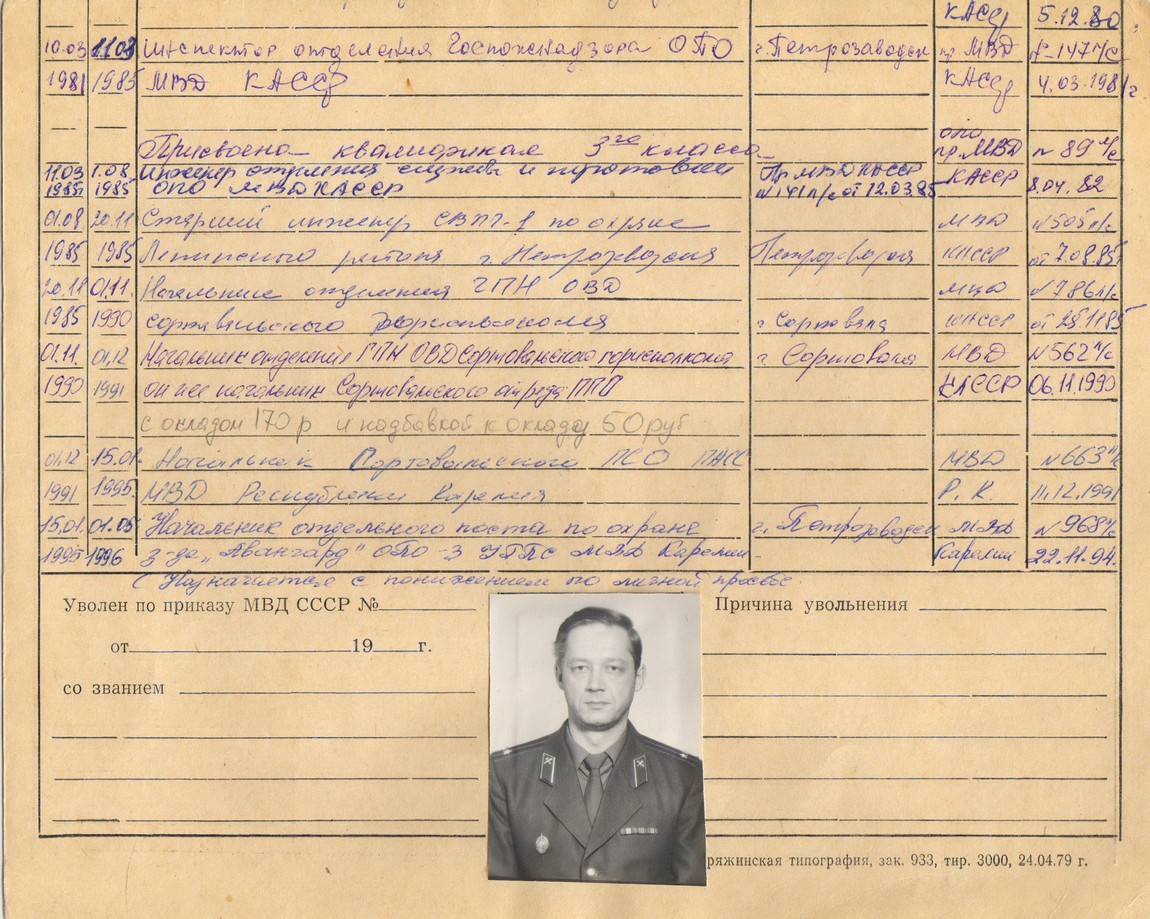 КАССР 5.12.80
10.03 11.03 Инспектор отделения Госпожнадзора ОПО г. Петрозаводск пр. МВД № 147 л/с
1981 1985 МВД КАССР КАССР 4.03.1981 г.
ОПО
Присвоена квалификация 3го класса пр. МВД № 89 л/с
11.03 1.08 Инженер отделения службы и подготовки Пр МВД КАССР КАССР
1985 1985 ОПО МВД КАССР № 141 л/с от 12.03.85 8.04.82
01.08 20.11 Старший инженер СВПЧ-1 по охране МВД № 505 л/с
1985 1985 Ленинского района г. Петрозаводска Петрозаводск КАССР от 7.08.85
20.11 01.11. Начальник отделения ГПН ОВД МВД № 786 л/с
1985 1990 Сортавальского горисполкома г Сортавала КАССР от 25.11.85
01.11. 01.12 Начальник отделения ГПН ОВД Сортавальского горисполкома г Сортавала МВД № 562 л/с
1990 1991 он же начальник Сортавальского отряда ППО КАССР 06.11.1990
с окладом 170 р и надбавкой к окладу 50 руб
01.12 15.01. Начальник Сортавальского ПСО ПАСС МВД № 663 л/с
1991 1995. МВД Республики Карелия Р. К. 11.12.1991
15.01. 01.05 Начальник отдельного поста по охране г. Петрозаводск МВД № 968 л/с
1995 1996 з-да „Авангард" ОПО-3 УГПС МВД Карелии- Карелии 22.11.94.
(Назначается с понижением по личной просьбе.
Уволен по приказу МВД СССР № Причина увольнения
от 19 г.
со званием
ряжинская типография, зак. 933, тир. 3000, 24.04.79 г.